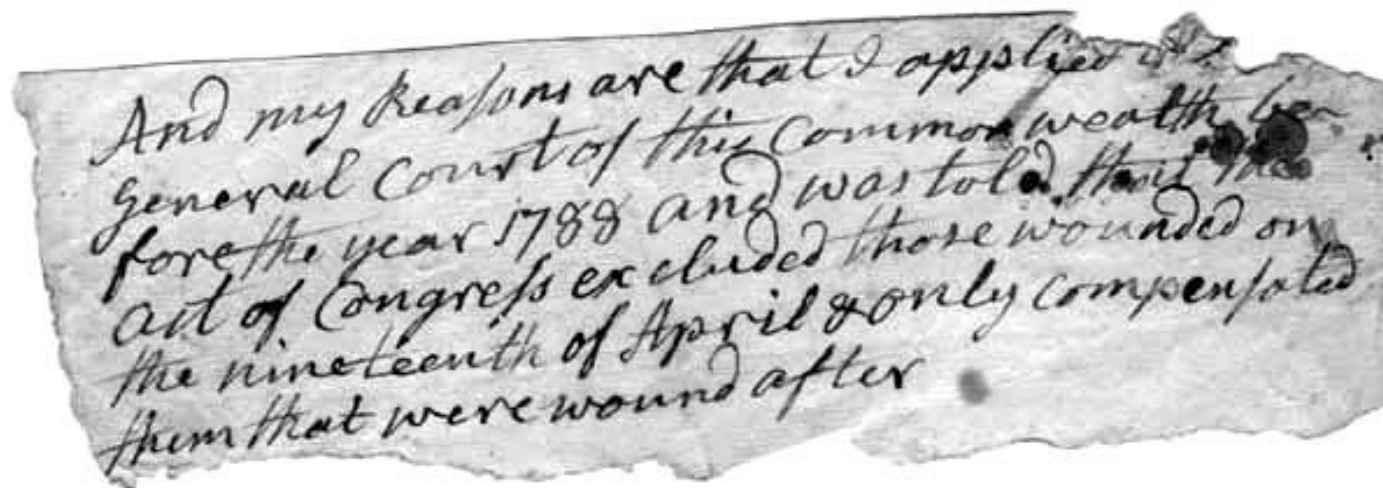 And my Reasons are that I applied
general Court of this Common wealth be-
fore the year 1788 and was told that the
act of Congress excluded those wounded on
the nineteenth of April & only compensated
them that were wound after